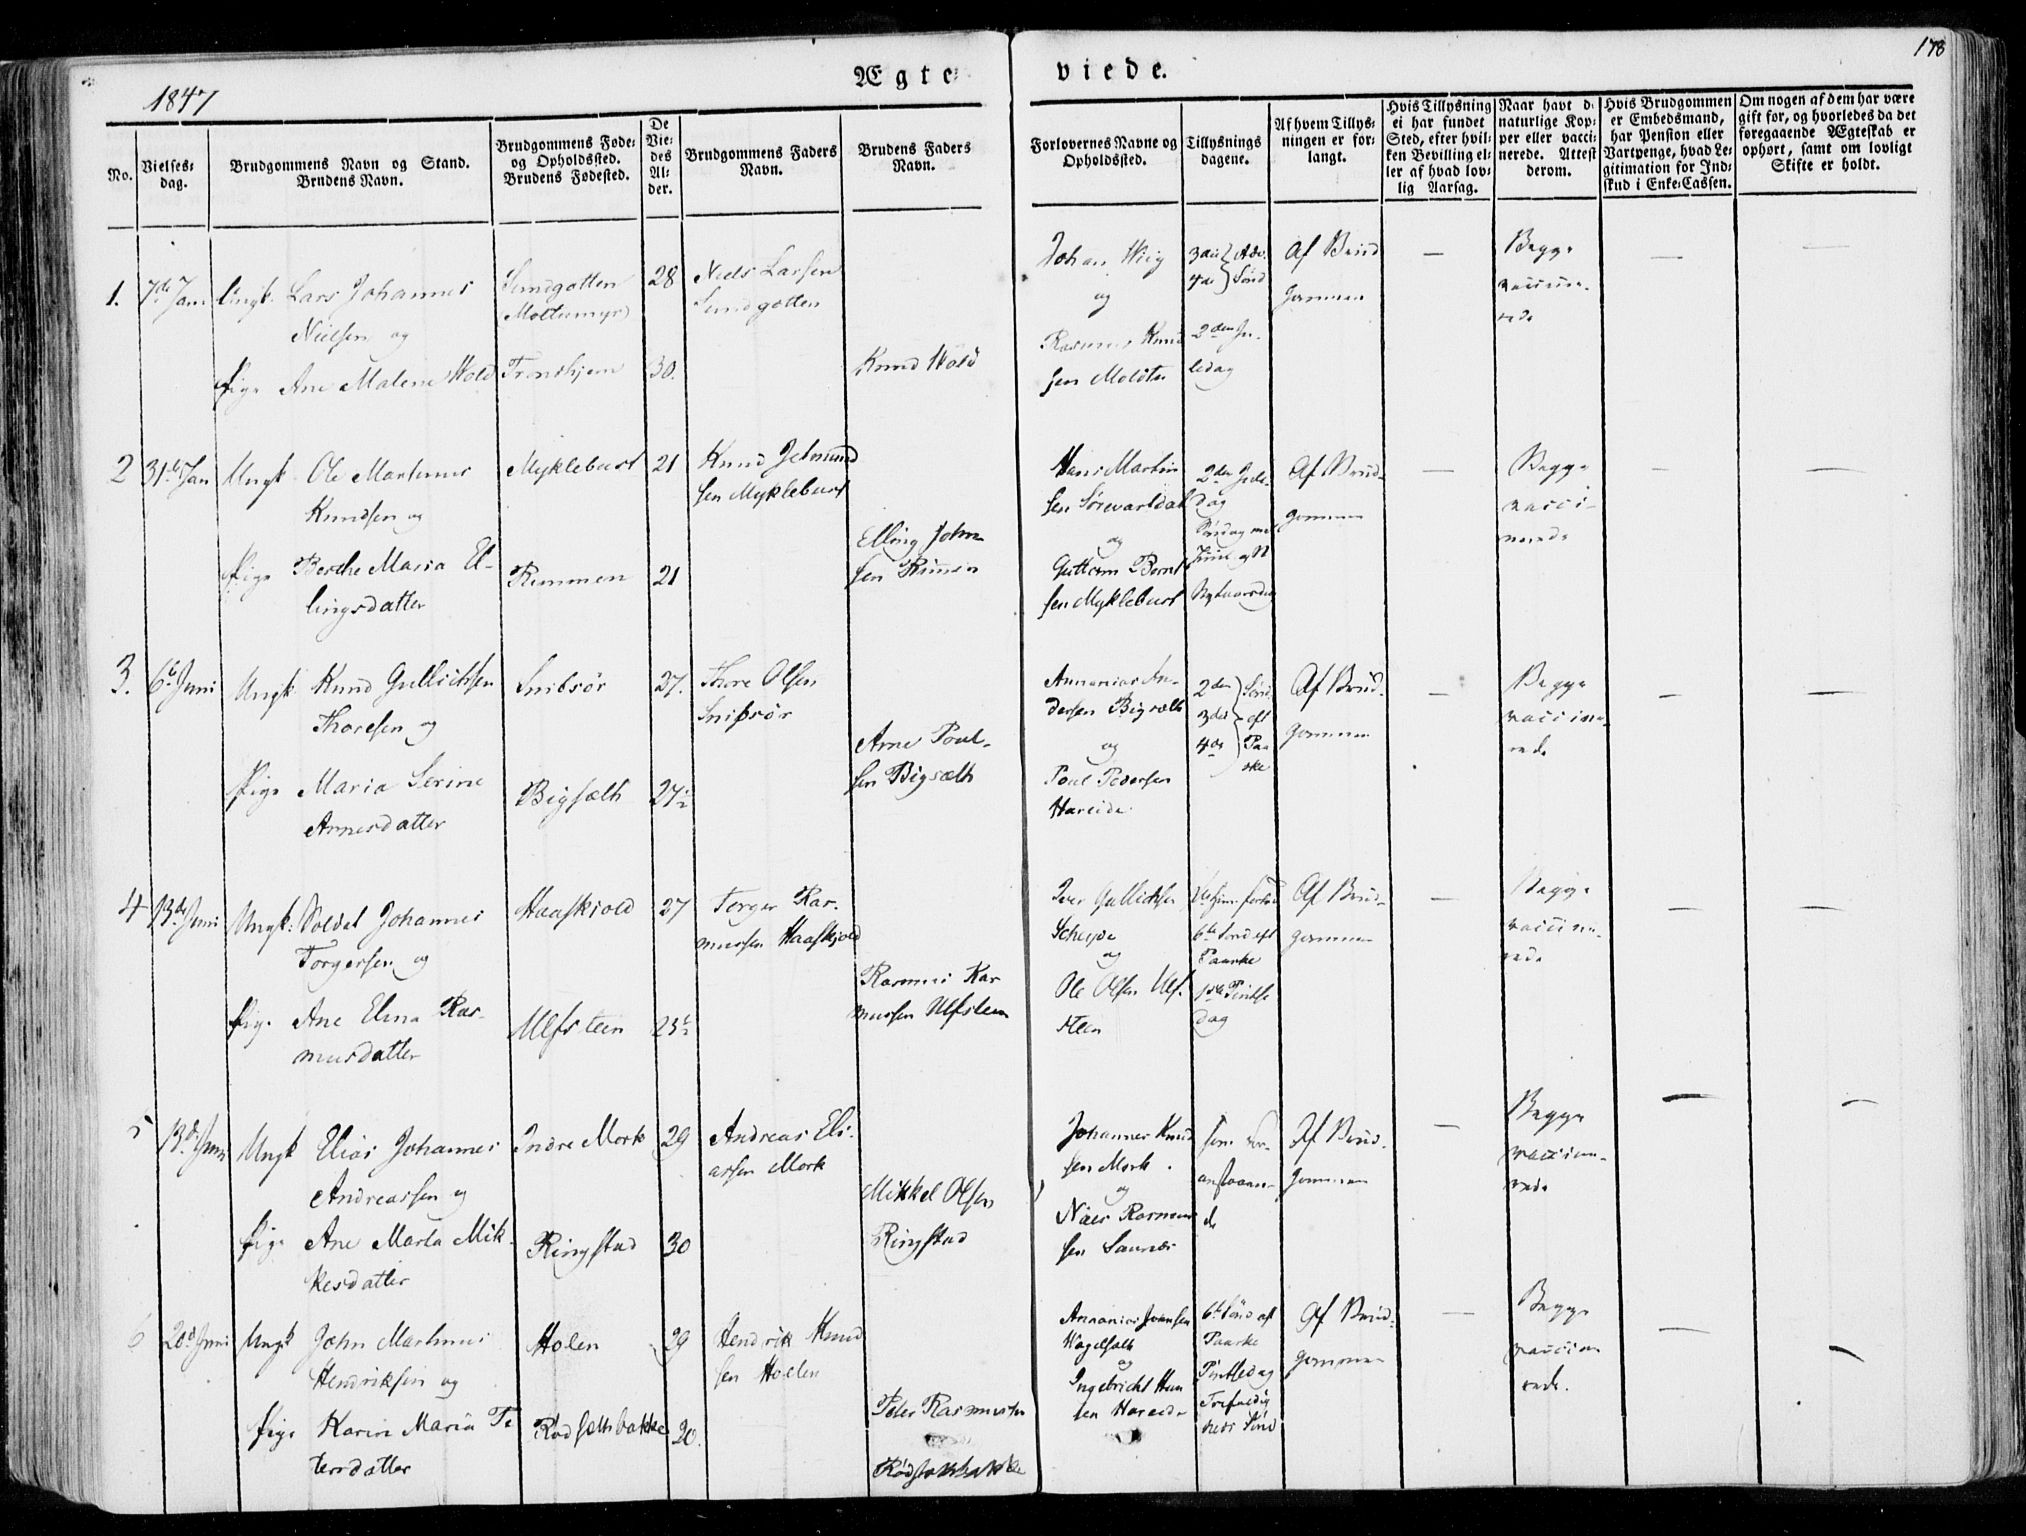 178
1847
Ægte-
viede.
No.
Vielses-
dag.
Brudgommens Navn og Stand.
Brudens Navn.
Brudgommens Føde-
og Opholdssted.
Brudens Fødested.
De
Vie-
des
Al-
der.
Brudgommens Faders
Navn.
Brudens Faders
Navn.
Forlovernes Navne og
Opholdssted.
Tillysnings
dagene.
Af hvem Tillys-
ningen er for-
langt.
Hvis Tillysning
ei har fundet
Sted, efter hvil-
ken Bevilling el-
ler af hvad lov-
lig Aarsag.
Naar havt de
naturlige Kop-
per eller vacci-
nerede. Attest
derom.
Hvis Brudgommen
er Embedsmand,
har Pension eller
Vartpenge, hvad Le-
gitimation for Ind-
skud i Enke-Cassen.
Om nogen af dem har være
gift før, og hvorledes da det
foregaaende Ægteskab er
ophørt, samt om lovligt
Skifte er holdt.
1.
7de Jan
Ungk. Lars Johannes
Nielsen og
Pige Ane Malene Hold
Sundgotten
Trondhjem
28
30.
Niels Larsen
Sundgotten
Knud Hold
Johan Wiig
og
Rasmus Knud
sen Moldtu
3die Adv.
4de Sønd
2den Ju-
ledag
Af Brud
gommen
Begge
vaccine-
rede
2
31te Jan
Ungk. Ole Martinus
Knudsen og
Pige Berthe Maria El-
lingsdatter
Myklebust
Rimmen
21
21
Knud Jetmund
sen Myklebust
Elling John
sen Rimen
Hans Martin
sen Sørevartdal
og
Guttorm Bernt
sen Myklebust
2den Jule-
dag
Nytaarsdag
Af Brud-
gommen
Begge
vacci-
nerede
3.
6te Juni
Ungk. Knud Gullichsen
Thoresen og
Pige Maria Serine
Arnesdatter
Snibsør
Bigsæth
27.
27½
Thore Olsen
Snibsør
Arne Poul-
sen Bigsæth
Annanias An-
dersen Bigsæth
og
Poul Pedersen
Hareide
2den Sønd
3die eft
4de Paa
ske
Af Brud-
gommen
Begge
vaccine-
rede
4
13de Juni
Ungk: Soldat Johannes
Torgersen og
Pige Ane Elina Ras-
musdatter
Haaskiold
Ulfsteen
27
25½
Torger Ras-
mussen Haaskjold
Rasmus Ras
mussen Ulfsteen
Iver Gullichsen
og
Ole Olsen Ulf-
steen
6te Sønd eft
Paaske
1ste Pintse
dag
Af Brud-
gommen
Begge
vaccine-
rede
5
13de Juni
Ungk Elias Johannes
Andreassen og
Pige Ane Marta Mik-
kesdatter
Indre Mork
Ringstad
29
30
Andreas Eli-
assen Mork
Mikkel Olsen
Ringstad
Johannes Knud
sen Mork
og
Niels Rasmus
sen
som for-
anstaaen-
de
Af Brud-
gommen
Begge
vaccine-
rede
6
20de Juni
Ungk John Martinus
Hendriksen og
Pige Karin Maria Pe
tersdatter
Holen
Rødsethbakke
29
20.
Hendrik Knud
sen Holen
Peter Rasmussen
Rødsethbakke
Annanias Iversen
og
Ingebricht Han
sen Hareide
6te Sønd eft
Paaske
Pintsedag
Trefoldig
heds Sønd
Af Brud-
gommen
Begge
vaccine
rede.